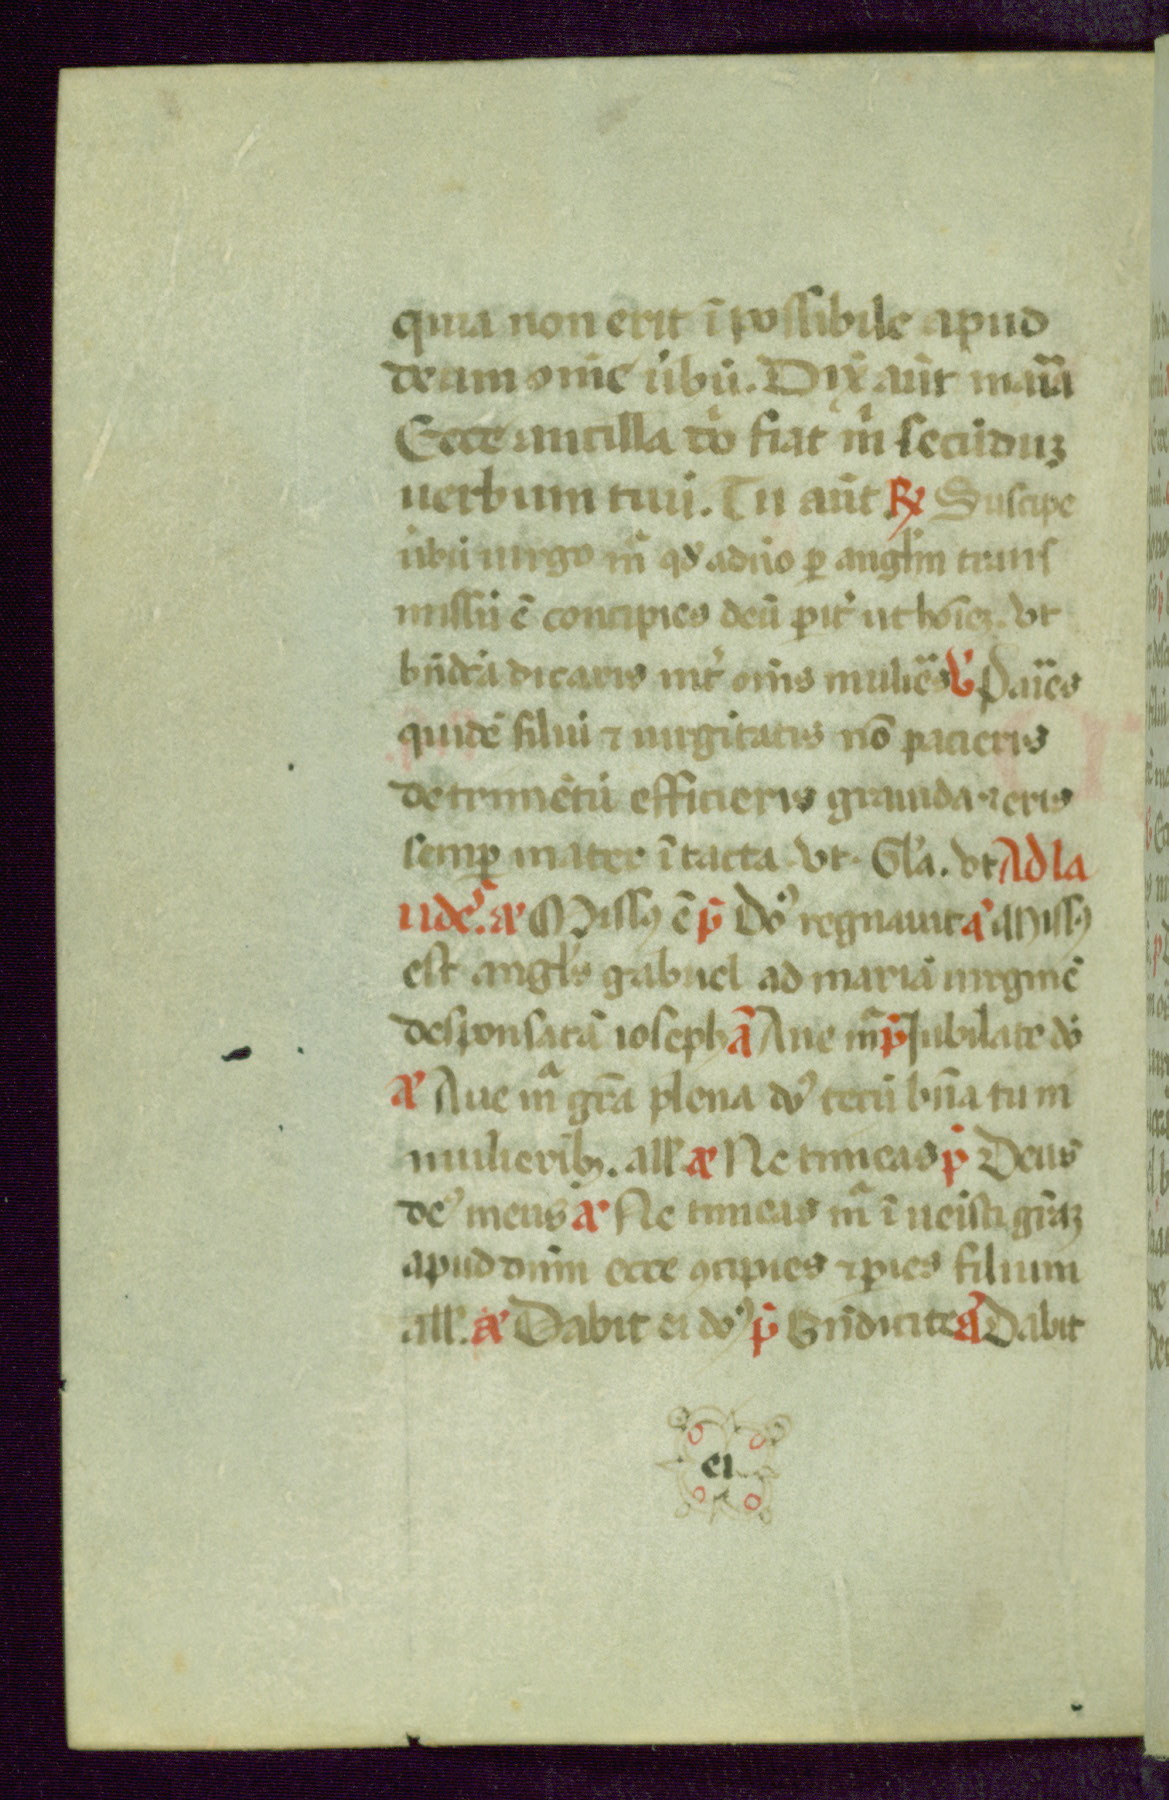 quia non erit ī possibile apud
deum omē ūbū. Dix̄ aūt maīa
Ecce ancilla dō fiat m̄ secūduꝫ
uerbum tuū. Tu aūt ℟ Suscipe
ūbū uirgo m̄ꝰ qđ a dn̄o ꝑ angl̄m trans
missū ē concipies deū paīt ut hoīeꝫ. Vt
bn̄dc̄a dicaris int̄ om̄s mulīes ℣ Paīes
quidē filiū ⁊ uirgītatis nō pacieris
detrimētū efficieris grauida ⁊ eris
semꝑ mater ītacta. Vt. Gl̄a. Vt Ad la
udes. añ Missꝰ ē p̄ Dō regnauit añ Missꝰ
est angl̄s gabriel ad mariā uirginē
desponsatā ioseph añ Aue m̄ p̄ Jubilate dō
añ Aue m̄ gr̄a plena dō tecū bn̄a tu in
mulieribꝰ. all̄ añ Ne timeas p̄ Deus
deꝰ meus añ Ne timeas m̄ īueisti gr̄aꝫ
apud dn̄m ecce ꝯcipies ⁊ paries filium
all̄. añ Dabit ei dō p̄ Bn̄dicite añ Dabit
ei